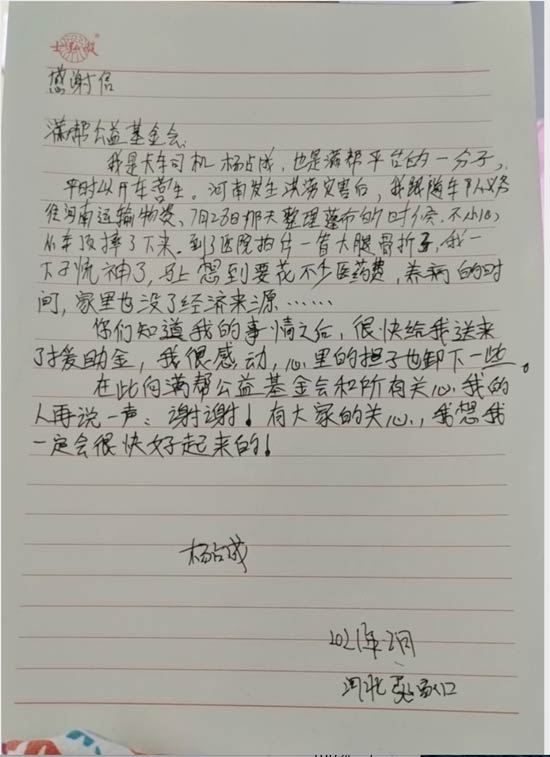 感谢信
满帮公益基金会：
我是卡车司机杨占成，也是满帮平台的一分子，
平时以开车营生。河南发生洪涝灾害后，我跟随车队义务
往河南运输物资，7月23日那天整理篷布的时候，不小心
从车顶摔了下来。到了医院拍片一看大腿骨折了，我一
下子慌神了，马上想到要花不少医药费，养病的时
间，家里也没了经济来源……
你们知道我的事情之后，很快给我送来
了援助金，我很感动，心里的担子也卸下一些。
在此向满帮公益基金会和所有关心我的
人再说一声：谢谢！有大家的关心，我想我
一定会很快好起来的！
杨占成
2021年2月
河北张家口